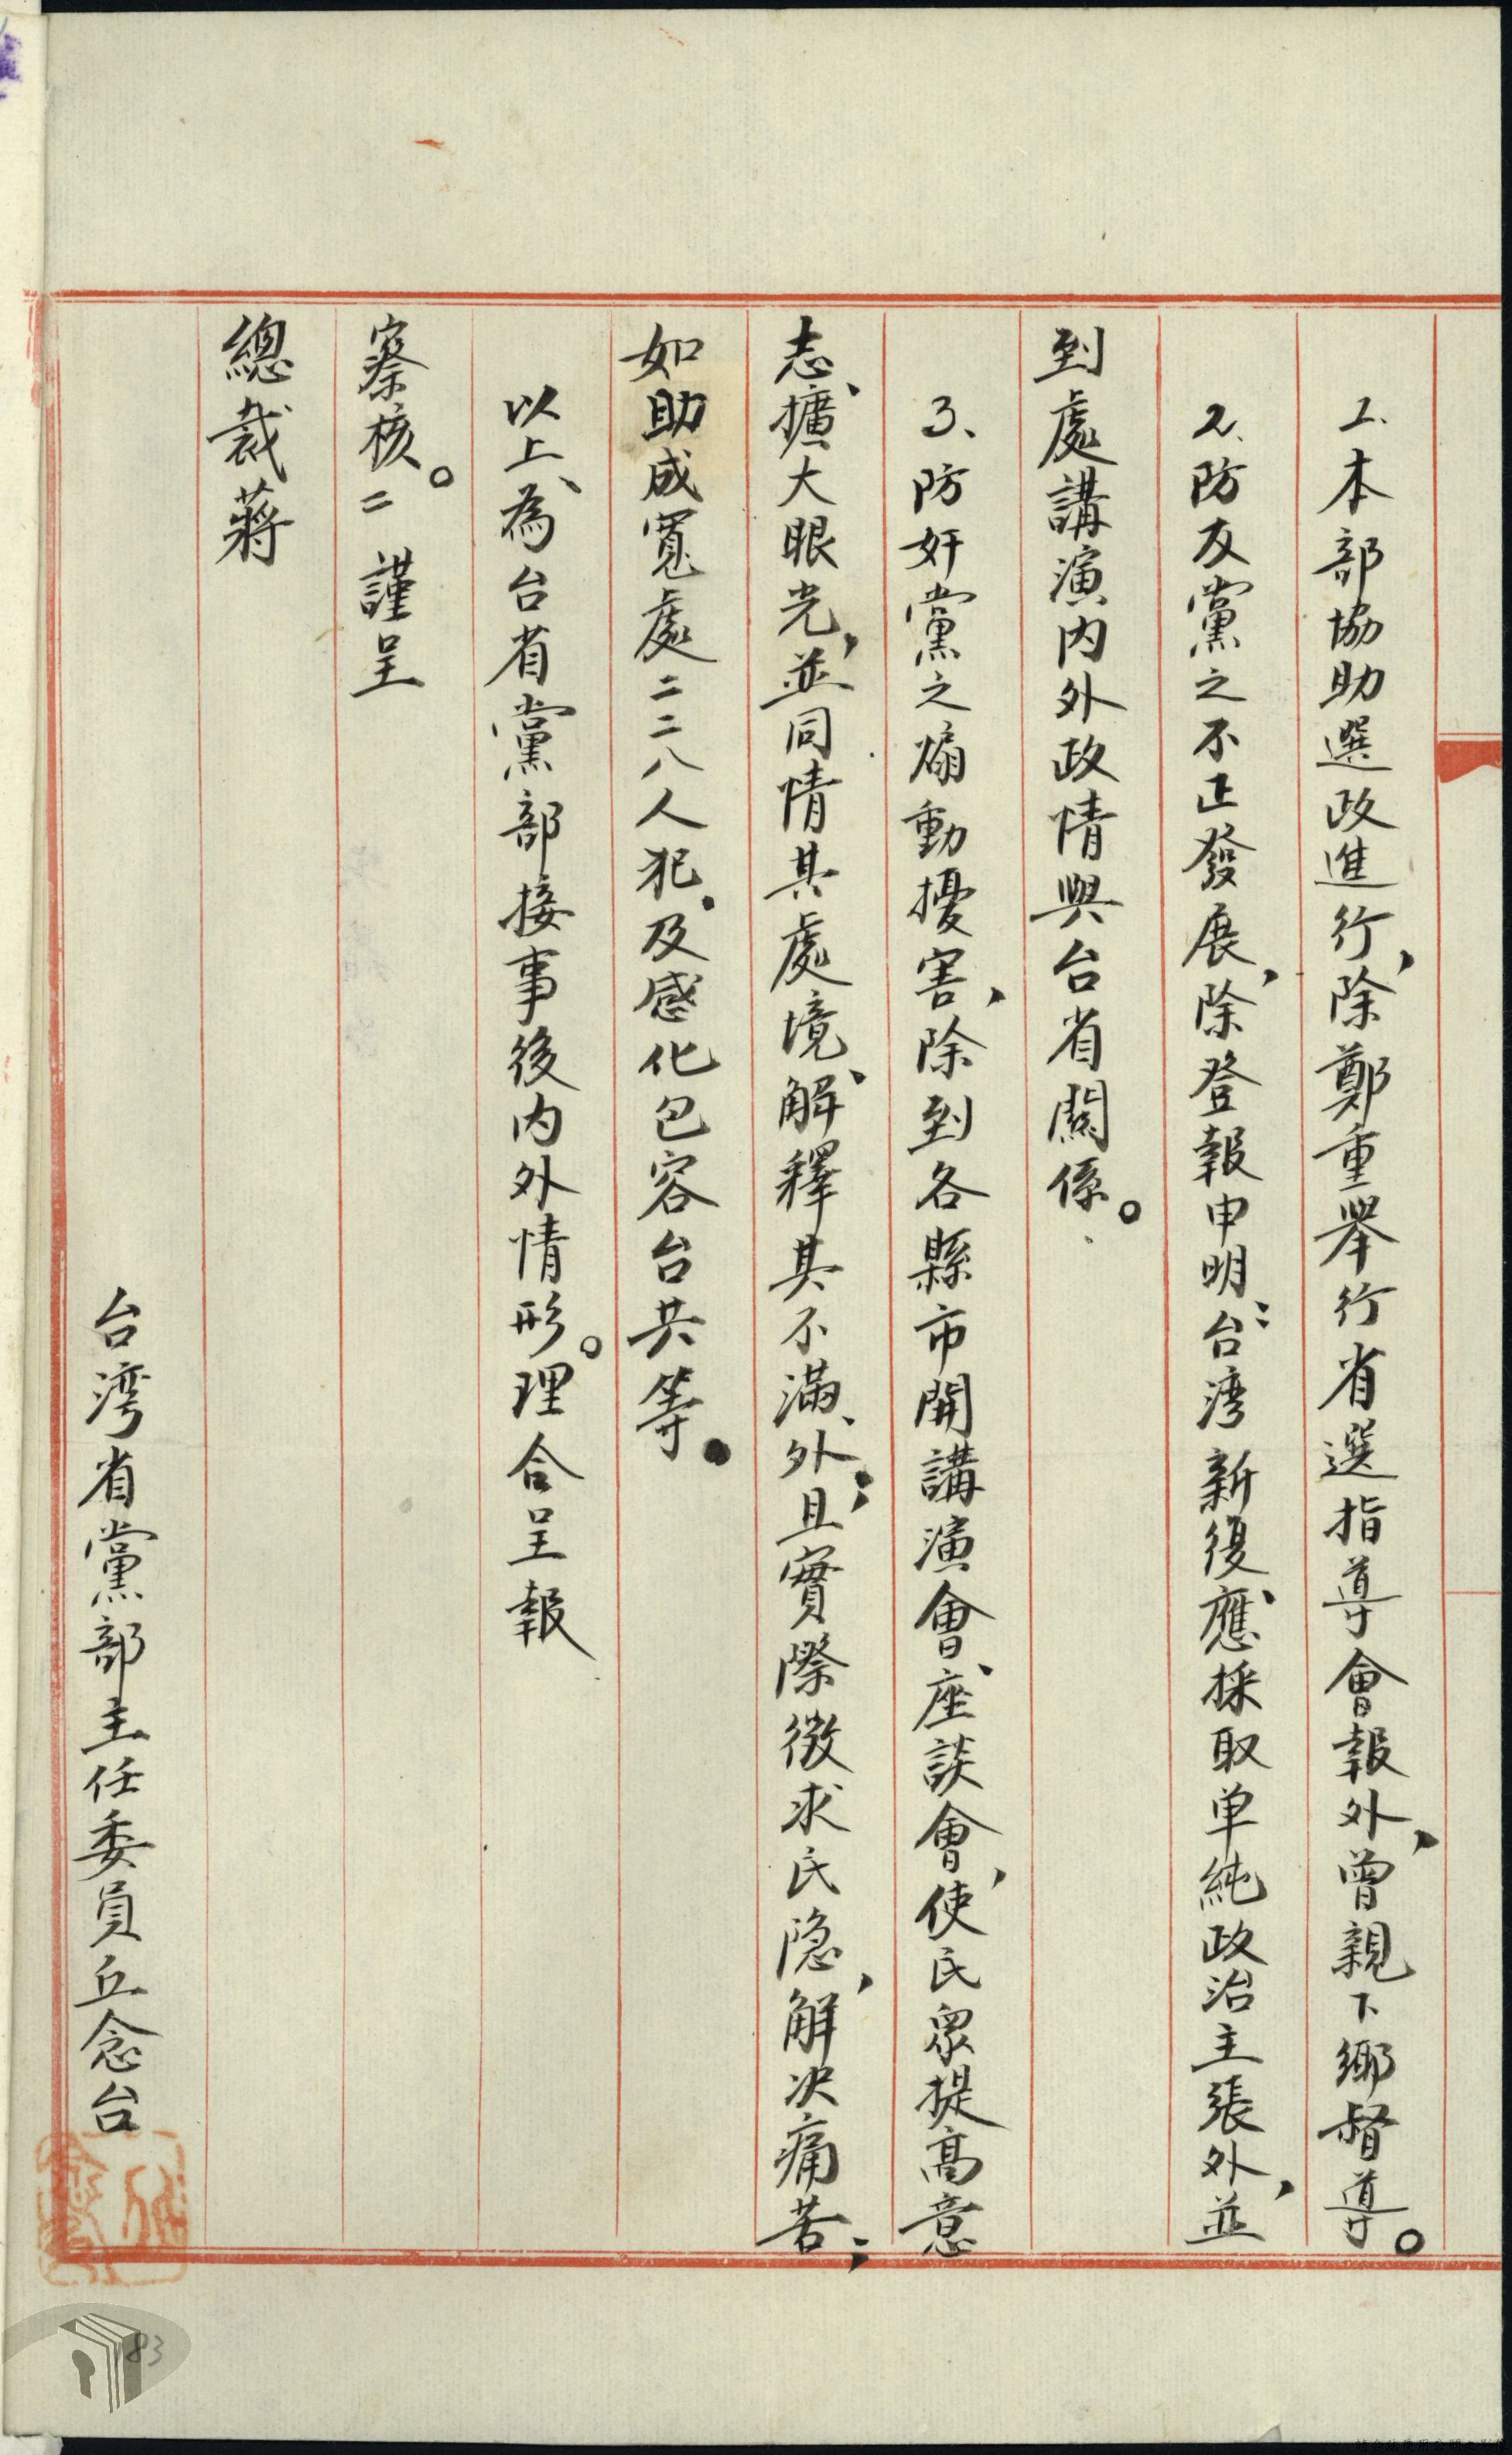 1.本部協助選政進行，除鄭重舉行省選指導會報外，曾親下鄉督導。
2.防友黨之不正發展，除登報申明：台湾新復、應採取单純政治主張外，並
到處講演内外政情與台省關係。
3、防奸黨之煽動擾害，除到各縣市開講演會、座談會，使民眾提高意
志、擴大眼光，並同情其處境、解釋其不滿、外；且實際徵求民隐，解决痛苦；
如助成寬處二二八人犯．及感化包容台共等．
以上、為台省黨部接事後内外情形。理合呈報
察核。=謹呈
總裁蔣
台湾省黨部主任委員丘念台
183